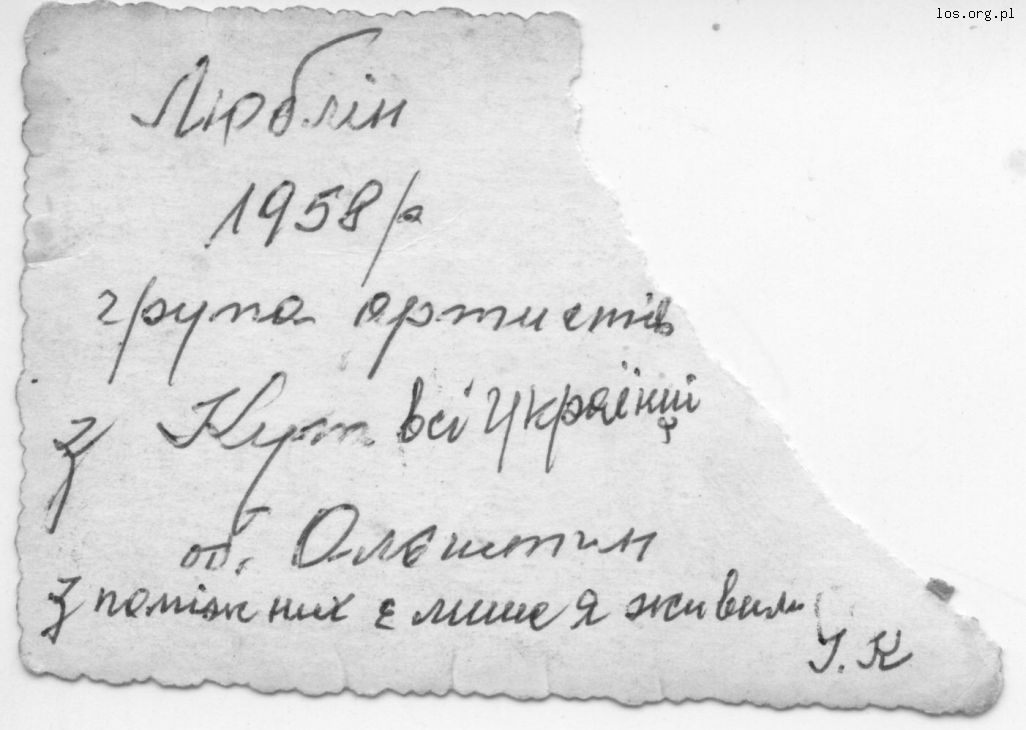 los.org.pl
Люблін
1958 р
група артистів
з Кут всі Українці
об. Ольштин
З поміж них є лише я живим
І. К